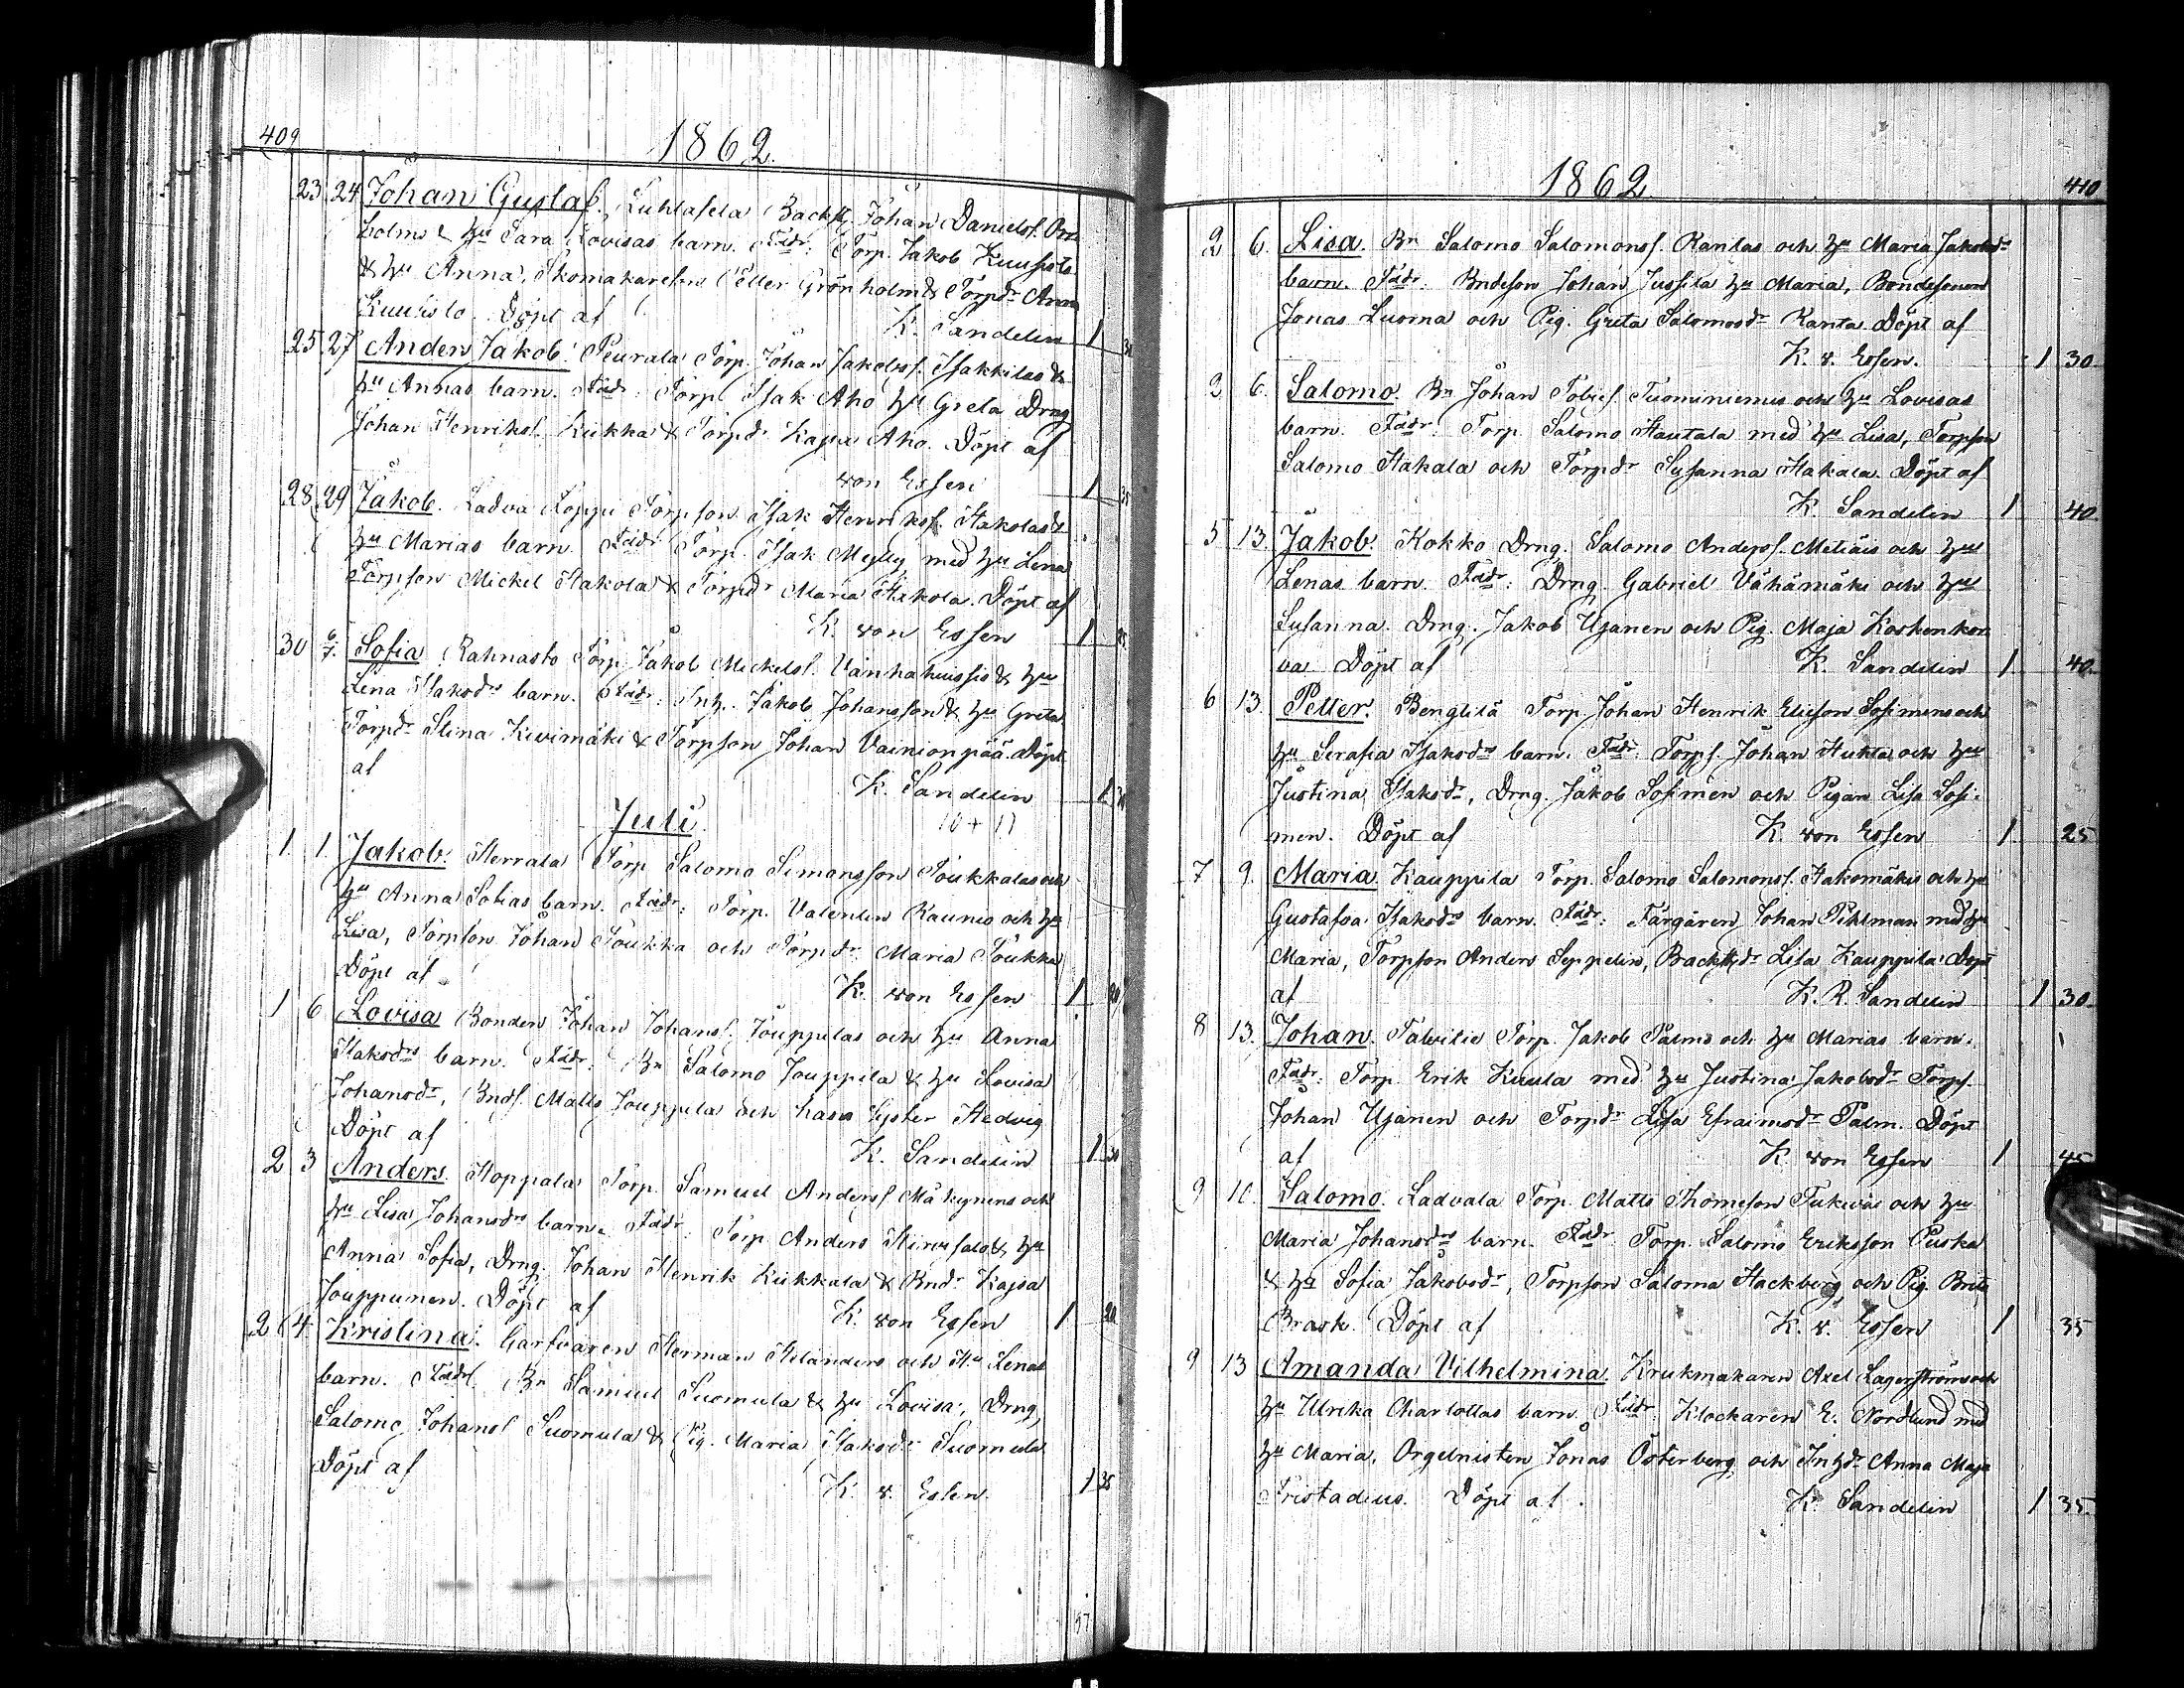 409
1862.
23 24 Johan Gustaf. Luhtasela Backst. Johan Danielss.
holms & hu Sara Lovisas barn. Faddr: Torp. Jakob Kuusisto
& hu Anna, Skomakaresn Petter Grönholm & Torpdr Anna
Kuusisto. Döpt af K. Sandelin 1
25 27 Anders Jakob. Peurala Torp. Johan Jakobss. Isakkilas &
hu Annas barn. Faddr: Torp. Isak Aho hu Greta Drng
Johan Henrikss. Kiikka & Torpdr Kajsa Aho. Döpt af
von Essen 1 35
28 29 Jakob. Ladva Loppi Torpson Isak Henrikss. Hakolas &
hu Marias barn. Faddr Torp. Isak Mylly med hu Lena
Torpson Mickel Hakola & Torpdr Maria Hakola. Döpt af
K. von Essen 1
30 6/7. Sofia. Rahnasto Torp. Jakob Mickelss. Vanhahuissis & hu
Lena Isaksdrs barn. Faddr: Inh. Jakob Johansson & hu Greta
Torpdr Stina Kivimäki & Torpson Johan Vainionpää. Döpt
af K. Sandelin 1
Juli. 10 + 11
1 1. Jakob. Herrala Torp. Salomo Simonsson Toukkalas och
hu Anna Sofias barn. Faddr: Torp. Valentin Kaunis och hu
Lisa, Torpson Johan Toukka och Torpdr Maria Toukka
Döpt af K. von Essen 1
1 6 Lovisa Bonden Johan Johanss. Jouppilas och hu Anna
Isaksdrs barn. Faddr: Bn Salomo Jouppila & hu Lovisa
Johansdr, Bnds. Matts Jouppila och hans syster Hedvig
Döpt af K. Sandelin 1 30
2 3 Anders. Hoppala Torp. Samuel Anderss Mäkynens och
hu Lisa Johansdrs barn. Faddr: Torp Anders Hirvisalo & hu
Anna Sofia, Drng. Johan Henrik Kiikkala & Bndr Kajsa
Jouppunen. Döpt af K. von Essen 1 20
2 4 Kristina. Garfvaren Herman Helanders och Hu Lenas
barn. Faddr. Bn Samuel Suomula & hu Lovisa, Drng
Salomo Johanss Suomula & Pig. Maria Isaksdr Suomula
Döpt af K. v. Essen. 1 35
57
1862 410
2 6. Lisa. Bn Salomo Salomonss. Rantas och hu Maria Jakobsdr
barn. Faddr: Bndeson Johan Jussila hu Maria, Bondesonen
Jonas Luoma och Pig. Greta Salomosdr Ranta Döpt af
K. v. Essen. 1 30
2 6. Salomo. Bn Johan Tobiss. Tuominiemis och hu Lovisas
barn. Faddr: Torp. Salomo Hautala med hu Lisa, Torpson
Salomo Hakala och Torpdr Susanna Hakala. Döpt af
K. Sandelin 1 40
5 13. Jakob. Kokko Drng. Salomo Anderss. Metiäis och hus
Lenas barn. Faddr: Drng. Gabriel Vähämäki och hus
Susanna. Drng. Jakob Ujanen och Pig. Maja Koskenkor
va Döpt af K. Sandelin 1 40
6 13. Petter. Benglilä Torp. Johan Henrik Elieson Sosimens och
hu Serafia Isaksdrs barn. Faddr: Torps. Johan Huhta och hus
Justina Isaksdr, Drng. Jakob Sosimen och Pigan Lisa Sosi-
men. Döpt af K. von Essen 1 25
7 9. Maria. Kauppila Torp. Salomo Salomonss. Hakomäkis och hu
Gustafva Isaksdrs barn. Faddr: Färgaren Johan Pihlman med hu
Maria, Torpson Anders Seppelin, Backstdr Lisa Kauppila. Döpt
af K. R. Sandelin 1 30
8 13. Johan. Talvilie Torp. Jakob Palms och hu Marias barn.
Faddr: Torp. Erik Kuula med hu Justina Jakobsdr Torps.
Johan Ujanen och Torpdr Lisa Efraimsdr Palm. Döpt
af K. von Essen 1 45
9 10. Salomo. Ladvala Torp. Matts Thomeson Tukevas och hu
Maria Johansdrs barn. Faddr: Torp. Salomo Eriksson Puska
& hu Sofia Jakobsdr, Torpson Salomo Hackberg och Pig. Brita
Brask. Döpt af K. v. Essen 1 35
9 13 Amanda Vilhelmina. Krukmakaren Axel Lagerströms och
hu Ulrika Charlottas barn. Faddr: Klockaren E. Nordlund med
hu Maria, Orgelnisten Jonas Österberg och Inhdr Anna Maja
Fristadius. Döpt af K. Sandelin 1 35.